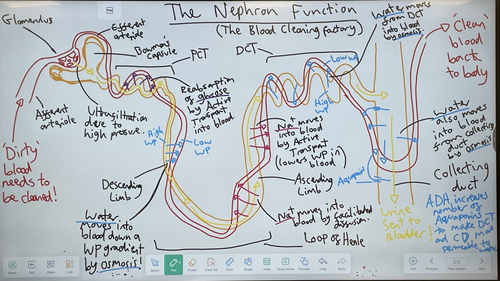 The Nephron Function
(The Blood Cleaning factory)
Glomerulus
Efferent
arteriole
Bowman's
Capsule
PCT
DCT
Water moves
from DCT
into blood
by osmosis.
'Clean'
blood
back to
body
Afferent
arteriole
Ultrafiltration
due to
high pressure.
Reabsorption
of glucose
by Active
Transport
into blood.
Low WP
High
WP
High
WP
Low
WP
Na+ moves
into blood
by Active
Transport
(lowers WP in
blood)
Water
also moves
into blood
from collecting
duct
by osmosis
Aquaporin
'Dirty'
blood
needs to
be cleaned!
Descending
Limb
Ascending
Limb
Water
moves into
blood down a
WP gradient
by osmosis!
Na+ moves into
blood by facilitated
diffusion.
Loop of Henle
Collecting
duct
Urine
Sent to
Bladder!
ADH increases
number of
Aquaporins
to make DCT
and CD more
permeable to